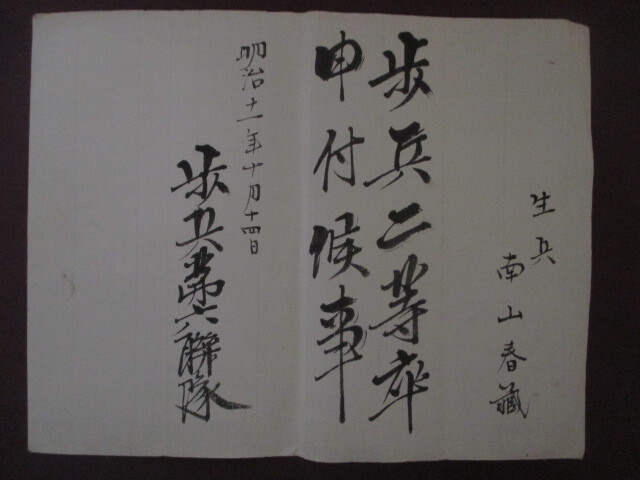 生兵
南山春藏
歩兵二等卒
申付候事
明治十一年十月十四日
歩兵第六聯隊